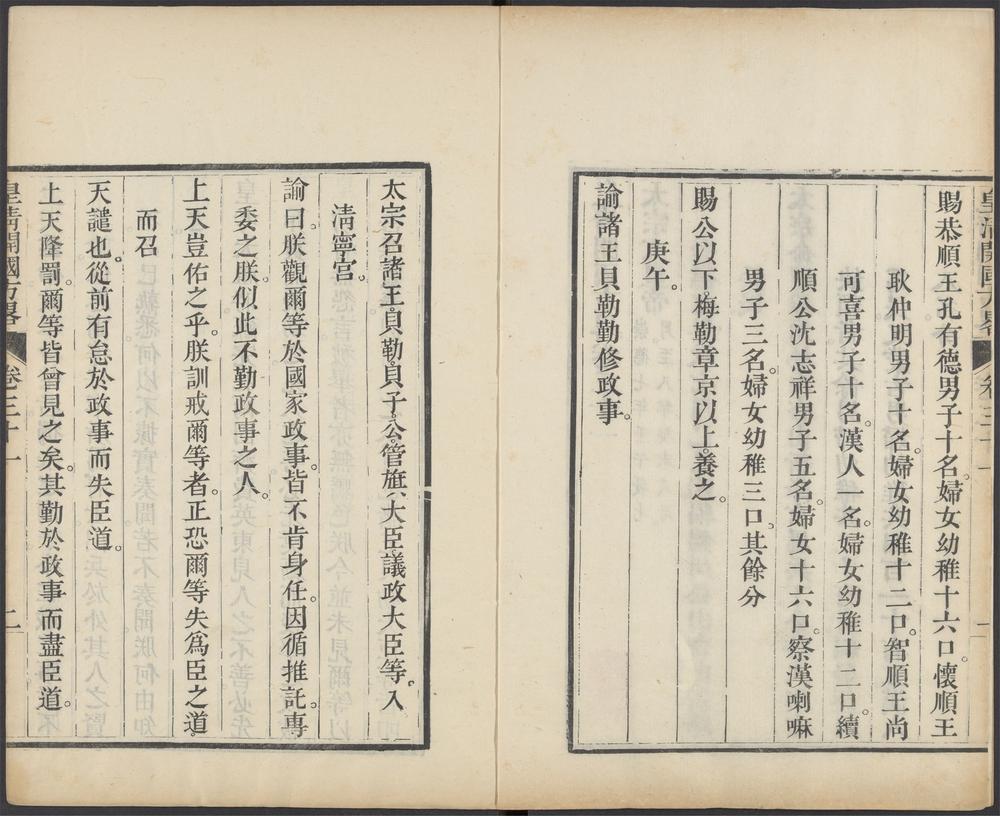 皇清開國方畧 卷三十一 一
賜恭順王孔有德男子十名。婦女幼稚十六口。懷順王
耿仲明男子十名。婦女幼稚十二口。智順王尚
可喜男子十名。漢人一名。婦女幼稚十二口。續
順公沈志祥男子五名。婦女十六口。察漢喇嘛
男子三名。婦女幼稚三口。其餘分
賜公以下梅勒章京以上。養之。
庚午。
諭諸王貝勒勤修政事。
太宗召諸王。貝勒。貝子。公。管旗大臣。議政大臣等。入
清寧宮。
諭曰。朕觀爾等於國家政事。皆不肯身任。因循推託。專
委之朕。似此不勤政事之人。
上天豈佑之乎。朕訓戒爾等者。正恐爾等失爲臣之道。
而召
天譴也。從前有怠於政事而失臣道。
上天降罰。爾等皆曾見之矣。其勤於政事而盡臣道。
皇清開國方畧 卷三十一 二